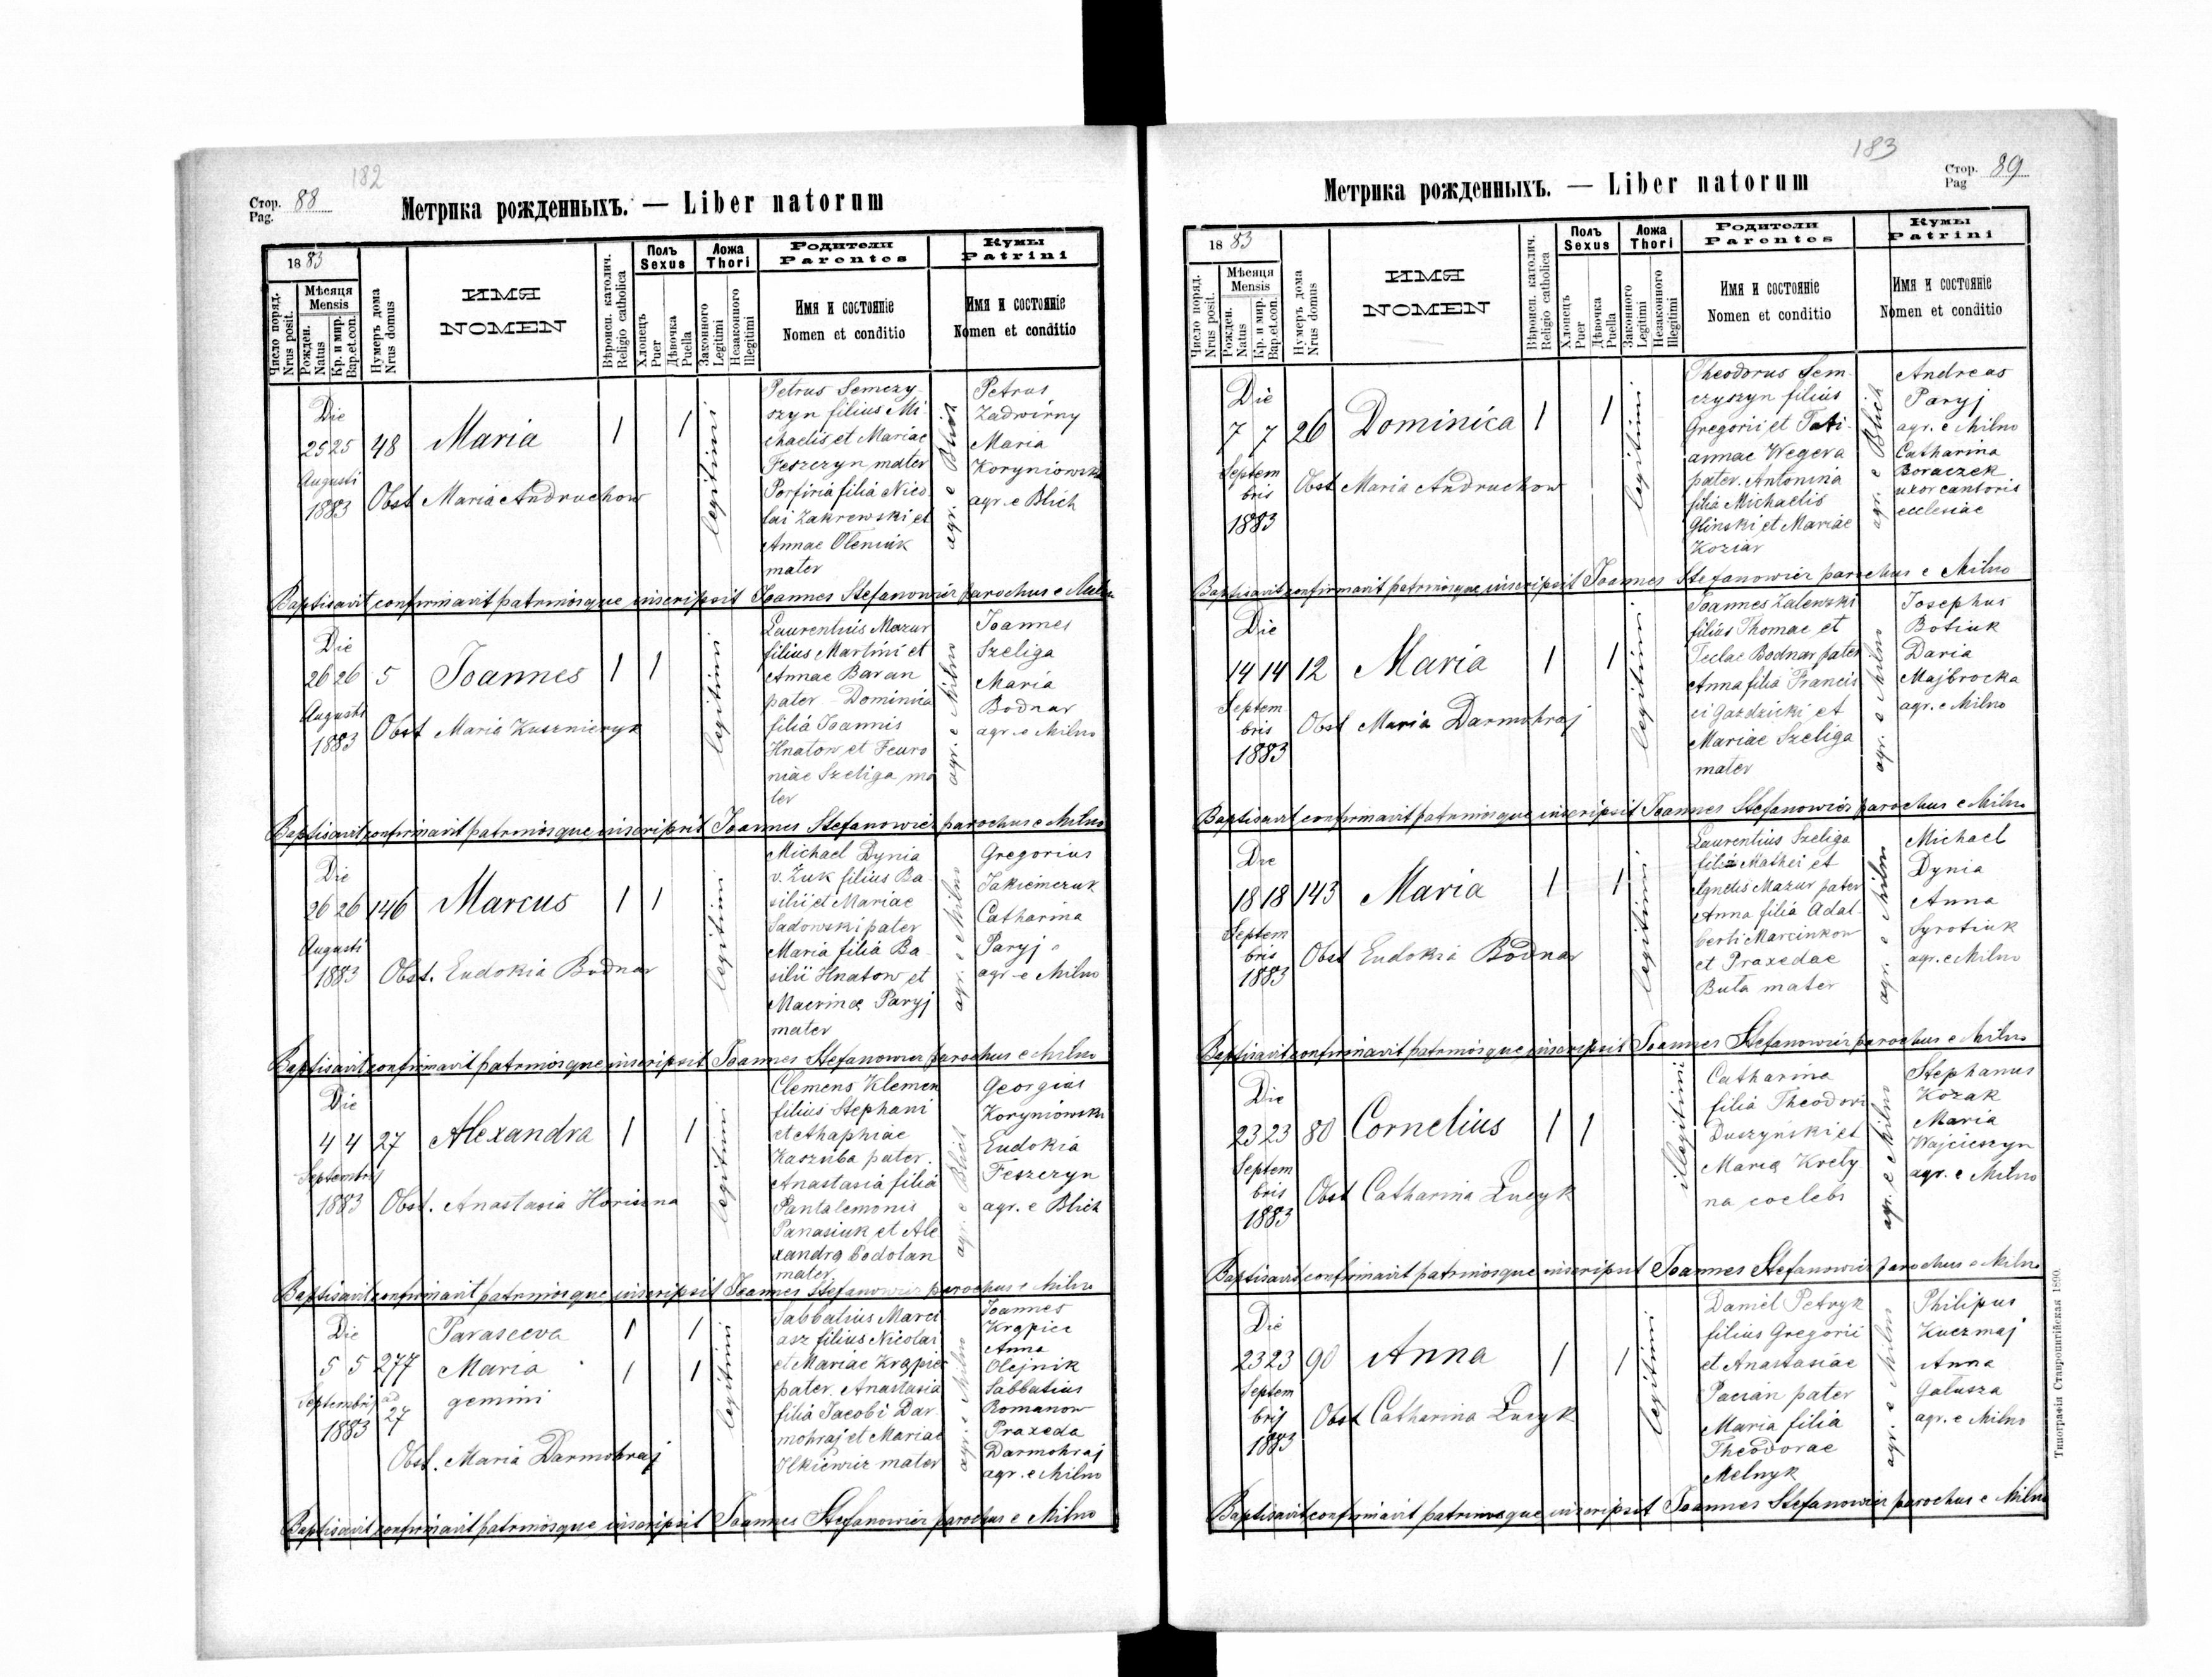 182
Стор. Pag. 88
Метрика рожденныхъ. — Liber natorum
1883
Число поряд. Nrus posit.
Мѣсяця Mensis
Рожден. Natus
Кр. и мир. Bap.et.con.
Нумеръ дома Nrus domus
ИМЯ
NOMEN
Вѣроисп. католич. Religio catholica
Полъ Sexus
Хлопецъ Puer
Дѣвочка Puella
Ложа Thori
Законного Legitimi
Незаконного Illegitimi
Родители
Parentes
Имя и состояніе
Nomen et conditio
Кумы
Patrini
Имя и состояніе
Nomen et conditio
Die
25 25 48 Maria 1 1 legitimi
Augusti
1883
Obst Maria Andruchow
Petrus Semczy
szyn filius Mi
chaelis et Mariae
Feszczyn mater
Porfiria filia Nico
lai Zakrewski et
Annae Oleniuk
mater
agr. e Blich
Petrus
Zadwirny
Maria
Koryniowska
agr. e Blich
Baptisavit confirmavit patrinosque inscripsit Joannes Stefanowicz parochus e Milno
Die
26 26 5 Joannes 1 1 legitimi
Augusti
1883
Obst Maria Kusznieryk
Laurentius Mazur
filius Martini et
Annae Baran
pater Dominica
filia Joannis
Hnatow et Feuro
niae Szeliga ma
ter
agr. e Milno
Joannes
Szeliga
Maria
Bodnar
agr. e Milno
Baptisavit confirmavit patrinosque inscripsit Joannes Stefanowicz parochus e Milno
Die
26 26 146 Marcus 1 1 legitimi
Augusti
1883
Obst. Eudokia Bodnar
Michael Dynia
v. Żuk filius Ba
silii et Mariae
Sadowski pater
Maria filia Ba
silii Hnatow et
Macrinae Paryj
mater
agr. e Milno
Gregorius
Jakiemczuk
Catharina
Paryj
agr e Milno
Baptisavit confirmavit patrinosque inscripsit Joannes Stefanowicz parochus e Milno
Die
4 4 27 Alexandra 1 1 legitimi
Septembris
1883
Obst. Anastasia Horiszna
Clemens Klemen
filius Stephani
et Ahaphiae
Kaszuba pater.
Anastasia filia
Pantalemonis
Panasiuk et Ale
xandra Podolan
mater
agr. e Blich
Georgius
Koryniowski
Eudokia
Feszczyn
agr. e Blich
Baptisavit confirmavit patrinosque inscripsit Joannes Stefanowicz parochus e Milno
Die
Parasceva 1 1
5 5 277 Maria 1 1 legitimi
Septembris ad 27 gemini
1883
Obst. Maria Darmohraj
Sabbatius Marci
asz filius Nicolai
et Mariae Krąpiec
pater. Anastasia
filia Jacobi Dar
mohraj et Mariae
Ilkiewicz mater
agr. e Milno
Joannes
Krąpiec
Anna
Olejnik
Sabbatius
Romanow
Praxeda
Darmohraj
agr. e Milno
Baptisavit confirmavit patrinosque inscripsit Joannes Stefanowicz parochus e Milno
183
Стор. Pag 89
Метрика рожденныхъ. — Liber natorum
1883
Число поряд. Nrus posit.
Мѣсяця Mensis
Рожден. Natus
Кр. и мир. Bap.et.con.
Нумеръ дома Nrus domus
ИМЯ
NOMEN
Вѣроисп. католич. Religio catholica
Полъ Sexus
Хлопецъ Puer
Дѣвочка Puella
Ложа Thori
Законного Legitimi
Незаконного Illegitimi
Родители
Parentes
Имя и состояніе
Nomen et conditio
Кумы
Patrini
Имя и состояніе
Nomen et conditio
Die
7 7 26 Dominica 1 1 legitimi
Septem
bris
1883
Obst Maria Andruchow
Theodorus Sem
czyszyn filius
Gregorii et Tati
annae Wegera
pater. Antonina
filia Michaelis
Glinski et Mariae
Koziar
agr. e Blich
Andreas
Paryj
agr. e Milno
Catharina
Boraczek
uxor cantoris
ecclesiae
Baptisavit confirmavit patrinosque inscripsit Joannes Stefanowicz parochus e Milno
Die
14 14 12 Maria 1 1 legitimi
Septem
bris
1883
Obst Maria Darmohraj
Joannes Zalewski
filius Thomae et
Teclae Bodnar pater
Anna filia Francis
ci Gardzicki et
Mariae Szeliga
mater
agr. e Milno
Josephus
Botiuk
Daria
Majbrocka
agr. e Milno
Baptisavit confirmavit patrinosque inscripsit Joannes Stefanowicz parochus e Milno
Die
18 18 143 Maria 1 1 legitimi
Septem
bris
1883
Obst Eudokia Bodnar
Laurentius Szeliga
filius Mathei et
Agnetis Mazur pater
Anna filia Adal
berti Marcinkow
et Praxedae
Buta mater
agr. e Milno
Michael
Dynia
Anna
Syrotiuk
agr. e Milno
Baptisavit confirmavit patrinosque inscripsit Joannes Stefanowicz parochus e Milno
Die
23 23 80 Cornelius 1 1 illegitimi
Septem
bris
1883
Obst Catharina Lucyk
Catharina
filia Theodori
Duszyński et
Maria Krely
na coelebs
agr. e Milno
Stephanus
Kozak
Maria
Wajcieszyn
agr. e Milno
Baptisavit confirmavit patrinosque inscripsit Joannes Stefanowicz parochus e Milno
Die
23 23 90 Anna 1 1 legitimi
Septem
bris
1883
Obst Catharina Lucyk
Daniel Petryk
filius Gregorii
et Anastasiae
Pacian pater
Maria filia
Theodorae
Melnyk
agr. e Milno
Philipus
Kuczmaj
Anna
Galusza
agr. e Milno
Baptisavit confirmavit patrinosque inscripsit Joannes Stefanowicz parochus e Milno
Типографія Ставропигійская 1890.